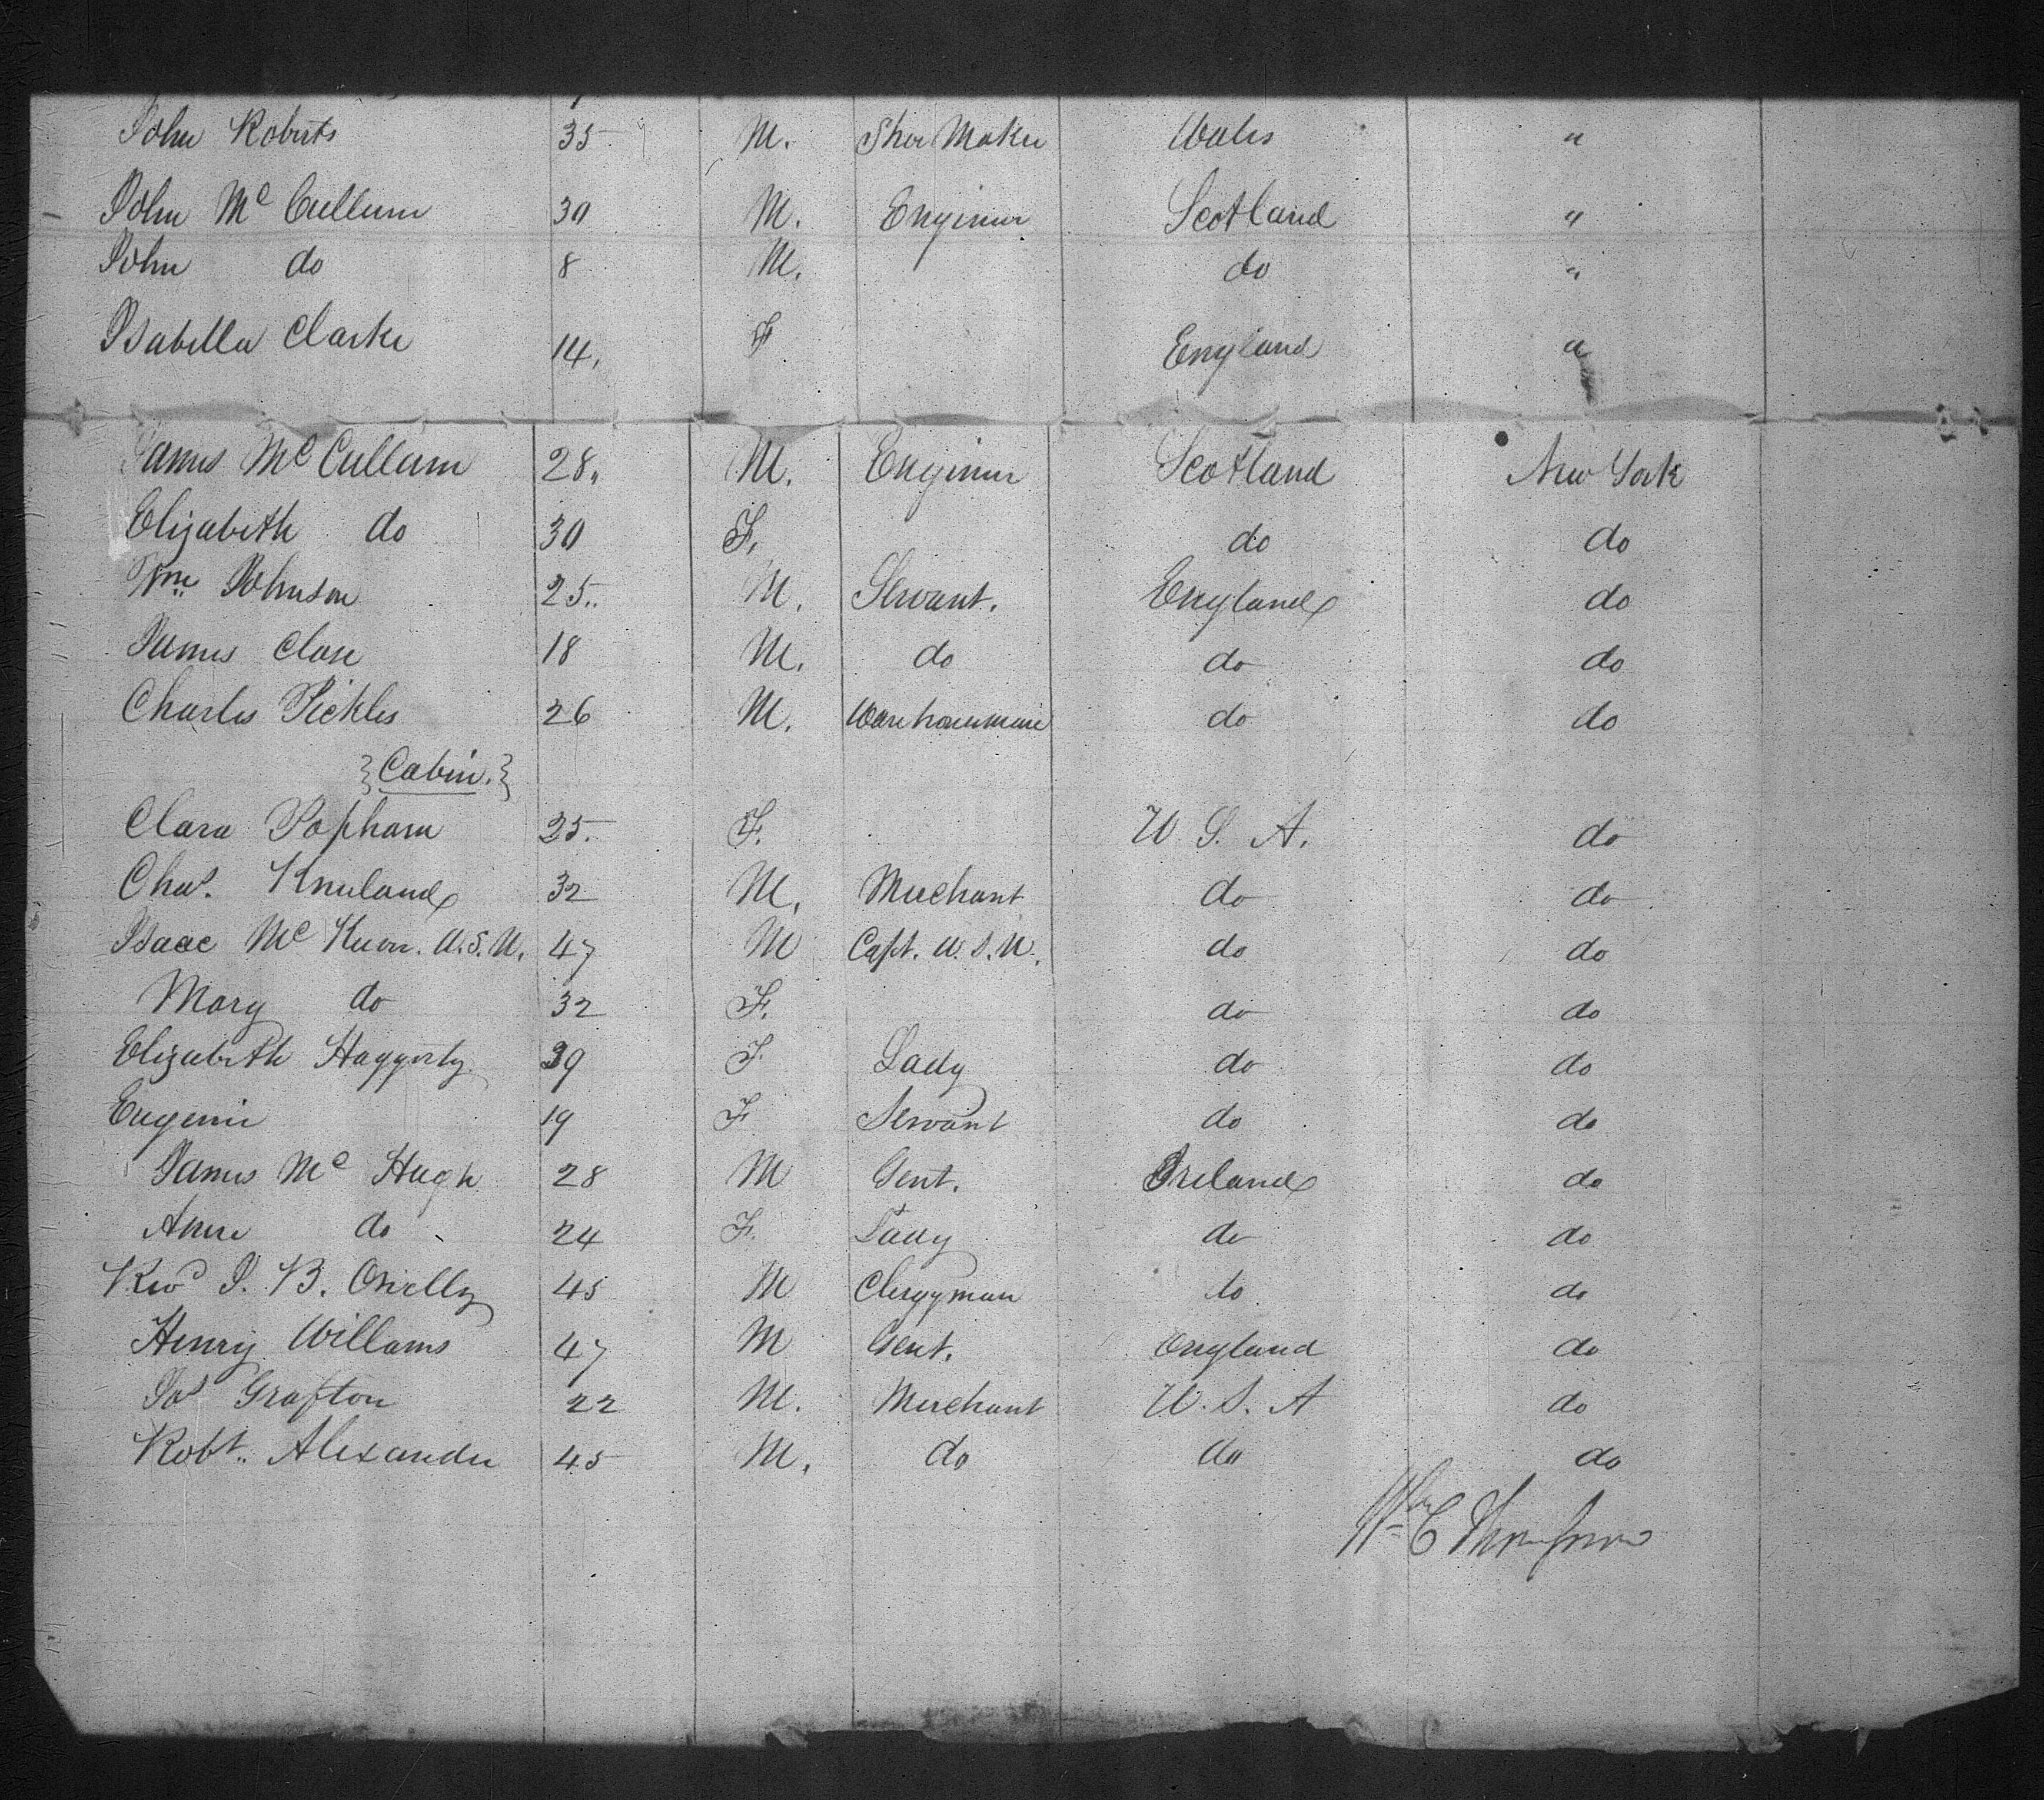 John Roberts 35 M. Shoe Maker Wales "
John Mc Cullum 30 M. Engineer Scotland "
John do 8 M. do "
Isabella Clarke 14. F England "
James Mc Cullum 28. M. Engineer Scotland New York
Elizabeth do 30 F. do do
Wm. Johnson 25. M. Servant. England do
James Close 18 M. do do do
Charles Pickles 26 M. Warehouseman do do
{Cabin.}
Clara Popham 25. F. U. S. A. do
Chas. Kneeland 32 M. Merchant do do
Isaac Mc Keever. U.S.N. 47 M Capt. U.S.N. do do
Mary do 32 F. do do
Elizabeth Haggerty 39 F Lady do do
Eugenie 19 F Servant do do
James Mc Hugh 28 M Gent. Ireland do
Anne do 24 F. Lady do do
Revd J. B. Orielly 45 M Clergyman do do
Henry Willams 47 M Gent. England do
Jos Grafton 22 M. Merchant U. S. A do
Robt. Alexander 45 M. do do do
Wm C Thompson